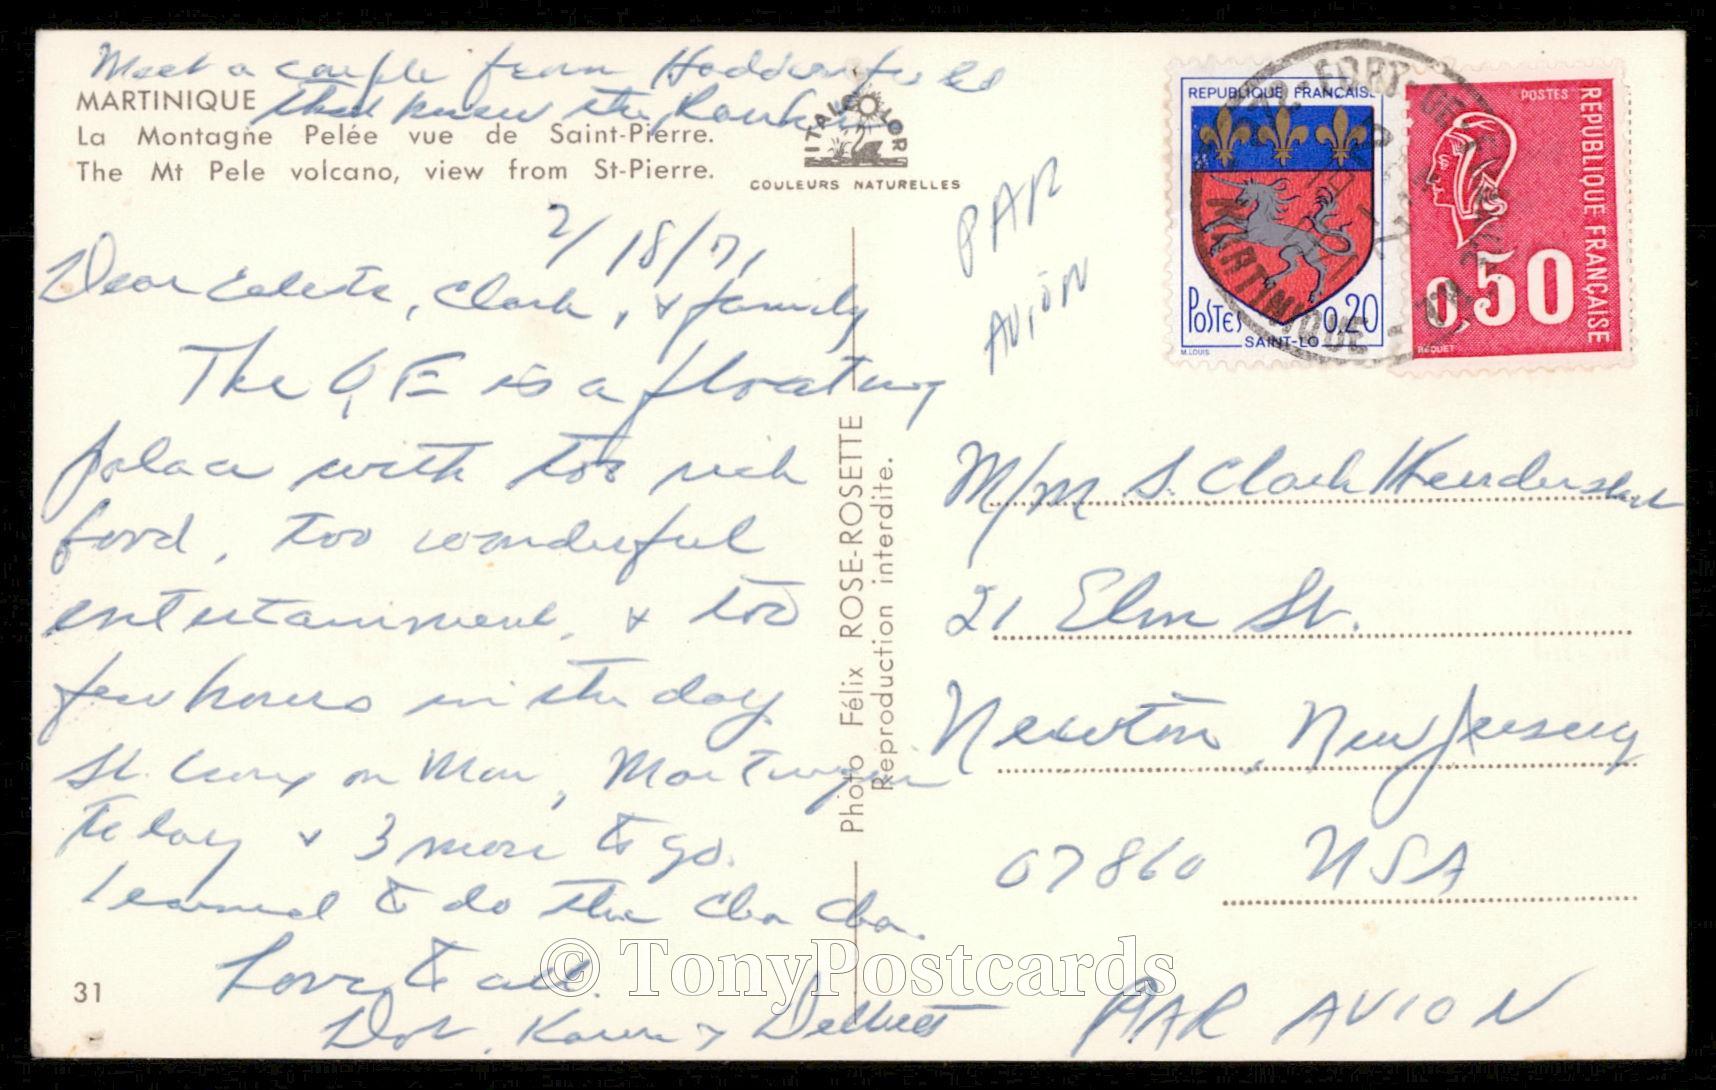 Meet a couple from
that knew the
MARTINIQUE
La Montagne Pelée vue de Saint-Pierre.
The Mt Pele volcano, view from St-Pierre.
ITALCOLOR
COULEURS NATURELLES
2/18/71
Dear Celeste, Clark, & family
The QE is a floating
palace with too rich
food, too wonderful
entertainment, & too
few hours in the day.
St. Croix on Mon, Martinique
today & 3 more to go.
Learned to do the Cha Cha.
Love to all.
Dot, Karen & Delbert
31
Photo Félix ROSE-ROSETTE
Reproduction interdite.
PAR
AVION
REPUBLIQUE FRANCAISE
POSTES 0,20
SAINT-LO
M.LOUIS
POSTES
REPUBLIQUE FRANÇAISE
0,50
BEQUET
972-FORT-DE-FRANCE
MARTINIQUE
M/M S. Clark Hendershot
21 Elm St.
Newton, New Jersey
07860 USA
PAR AVION
© TonyPostcards